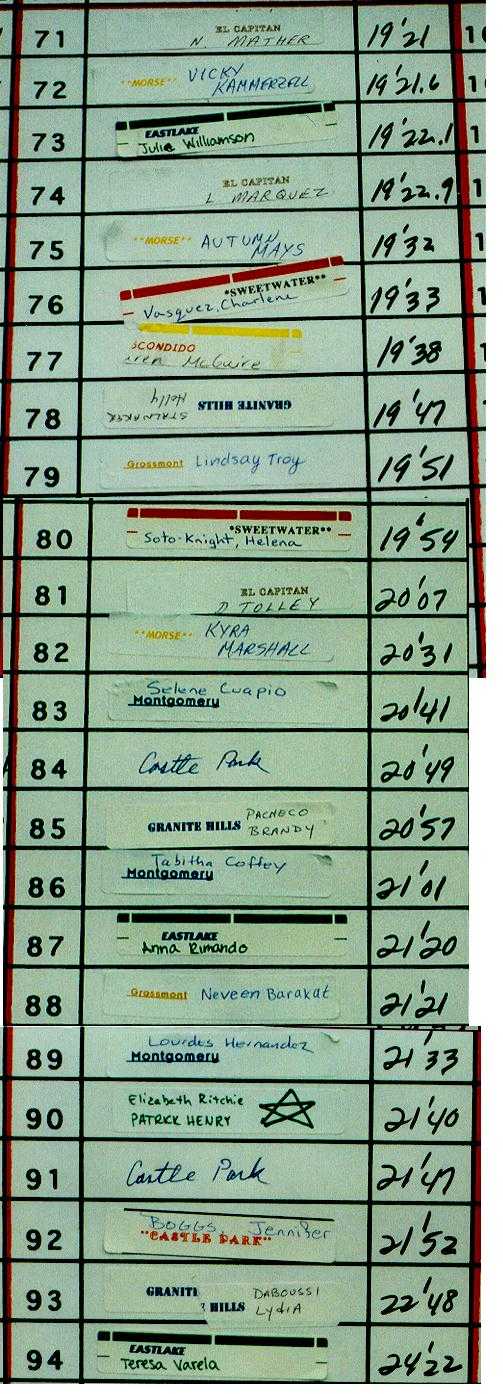 71 EL CAPITAN 19'21
N. MATHER
72 **MORSE** VICKY 19'21.6
KAMMERZELL
73 EASTLAKE 19'22.1
Julie Williamson
74 EL CAPITAN 19'22.9
L MARQUEZ
75 **MORSE** AUTUMN 19'32
MAYS
76 *SWEETWATER** 19'33
Vasquez, Charlene
77 SCONDIDO 19'38
McGuire
78 GRANITE HILLS 19'47
STALNAKER
Holly
79 Grossmont Lindsay Troy 19'51
80 *SWEETWATER** 19'54
Soto-Knight, Helena
81 EL CAPITAN 20'07
D TOLLEY
82 **MORSE** KYRA 20'31
MARSHALL
83 Selene Cuapio 20'41
Montgomery
84 Castle Park 20'49
85 GRANITE HILLS PACHECO 20'57
BRANDY
86 Tabitha Coffey 21'01
Montgomery
87 EASTLAKE 21'20
Anna Rimando
88 Grossmont Neveen Barakat 21'21
89 Lourdes Hernandez 21'33
Montgomery
90 Elizabeth Ritchie 21'40
PATRICK HENRY
91 Castle Park 21'47
92 BOGGS Jennifer 21'52
"CASTLE PARK"
93 GRANITE DABOUSSI 22'48
HILLS LydiA
94 EASTLAKE 24'22
Teresa Varela